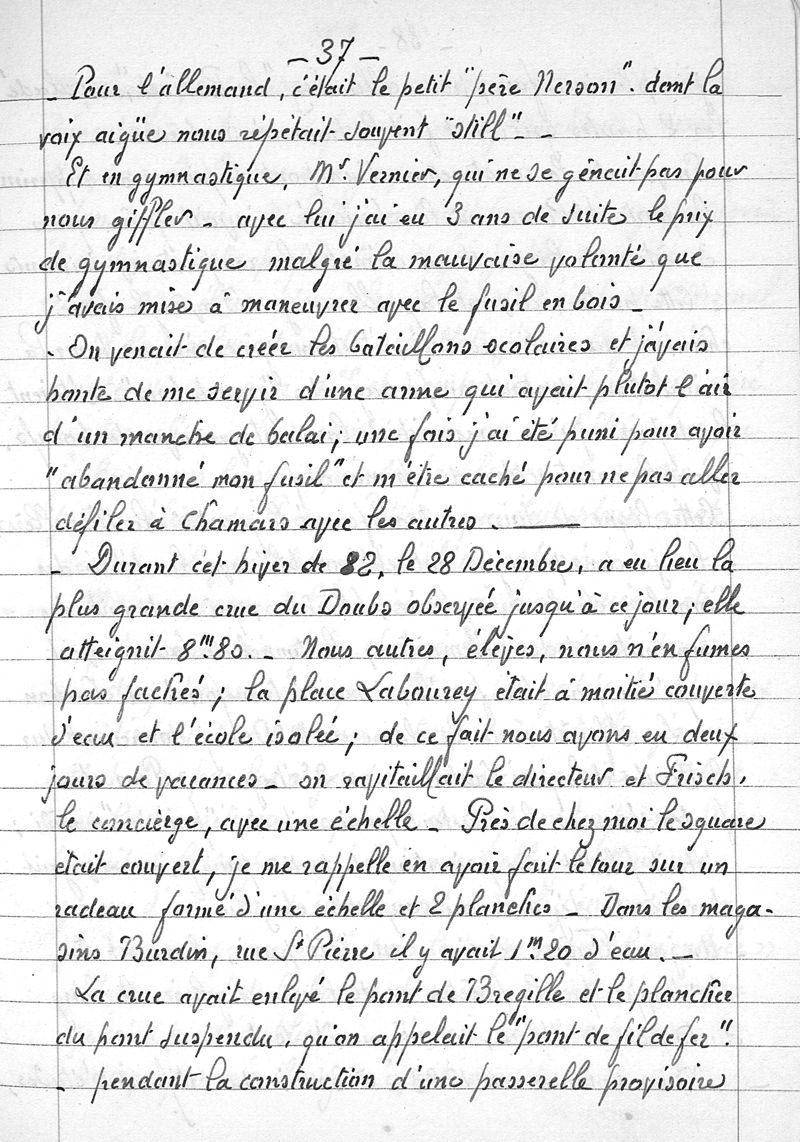 - 37 -
- Pour l'allemand, c'était le petit "père Nerson". dont la
voix aigüe nous répétait souvent "still" - -
Et en gymnastique, Mr. Vernier, qui ne se gênait pas pour
nous giffler - avec lui j'ai eu 3 ans de suite le prix
de gymnastique malgré la mauvaise volonté que
j'avais mise à maneuvrer avec le fusil en bois -
. On venait de créer les bataillons scolaires et j'avais
honte de me servir d'une arme qui avait plutot l'air
d'un manche de balai ; une fois j'ai été puni pour avoir
"abandonné mon fusil" et m'être caché pour ne pas aller
défiler à Chamars avec les autres . ——
- Durant cet hiver de 82, le 28 Décembre, a eu lieu la
plus grande crue du Doubs observée jusqu'à ce jour ; elle
atteignit 8m.80. - Nous autres, élèves, nous n'en fumes
pas fachés ; la place Labourey était à moitié couverte
d'eau et l'école isolée ; de ce fait nous avons eu deux
jours de vacances - on ravitaillait le directeur et Frisch,
le concièrge, avec une échelle - Près de chez moi le square
était couvert, je me rappelle en avoir fait le tour sur un
radeau formé d'une échelle et 2 planches - Dans les maga-
sins Burdin, rue St Pierre il y avait 1m20 d'eau . -
La crue avait enlevé le pont de Bregille et le plancher
du pont suspendu, qu'on appelait le "pont de fil de fer".
- pendant la construction d'une passerelle provisoire